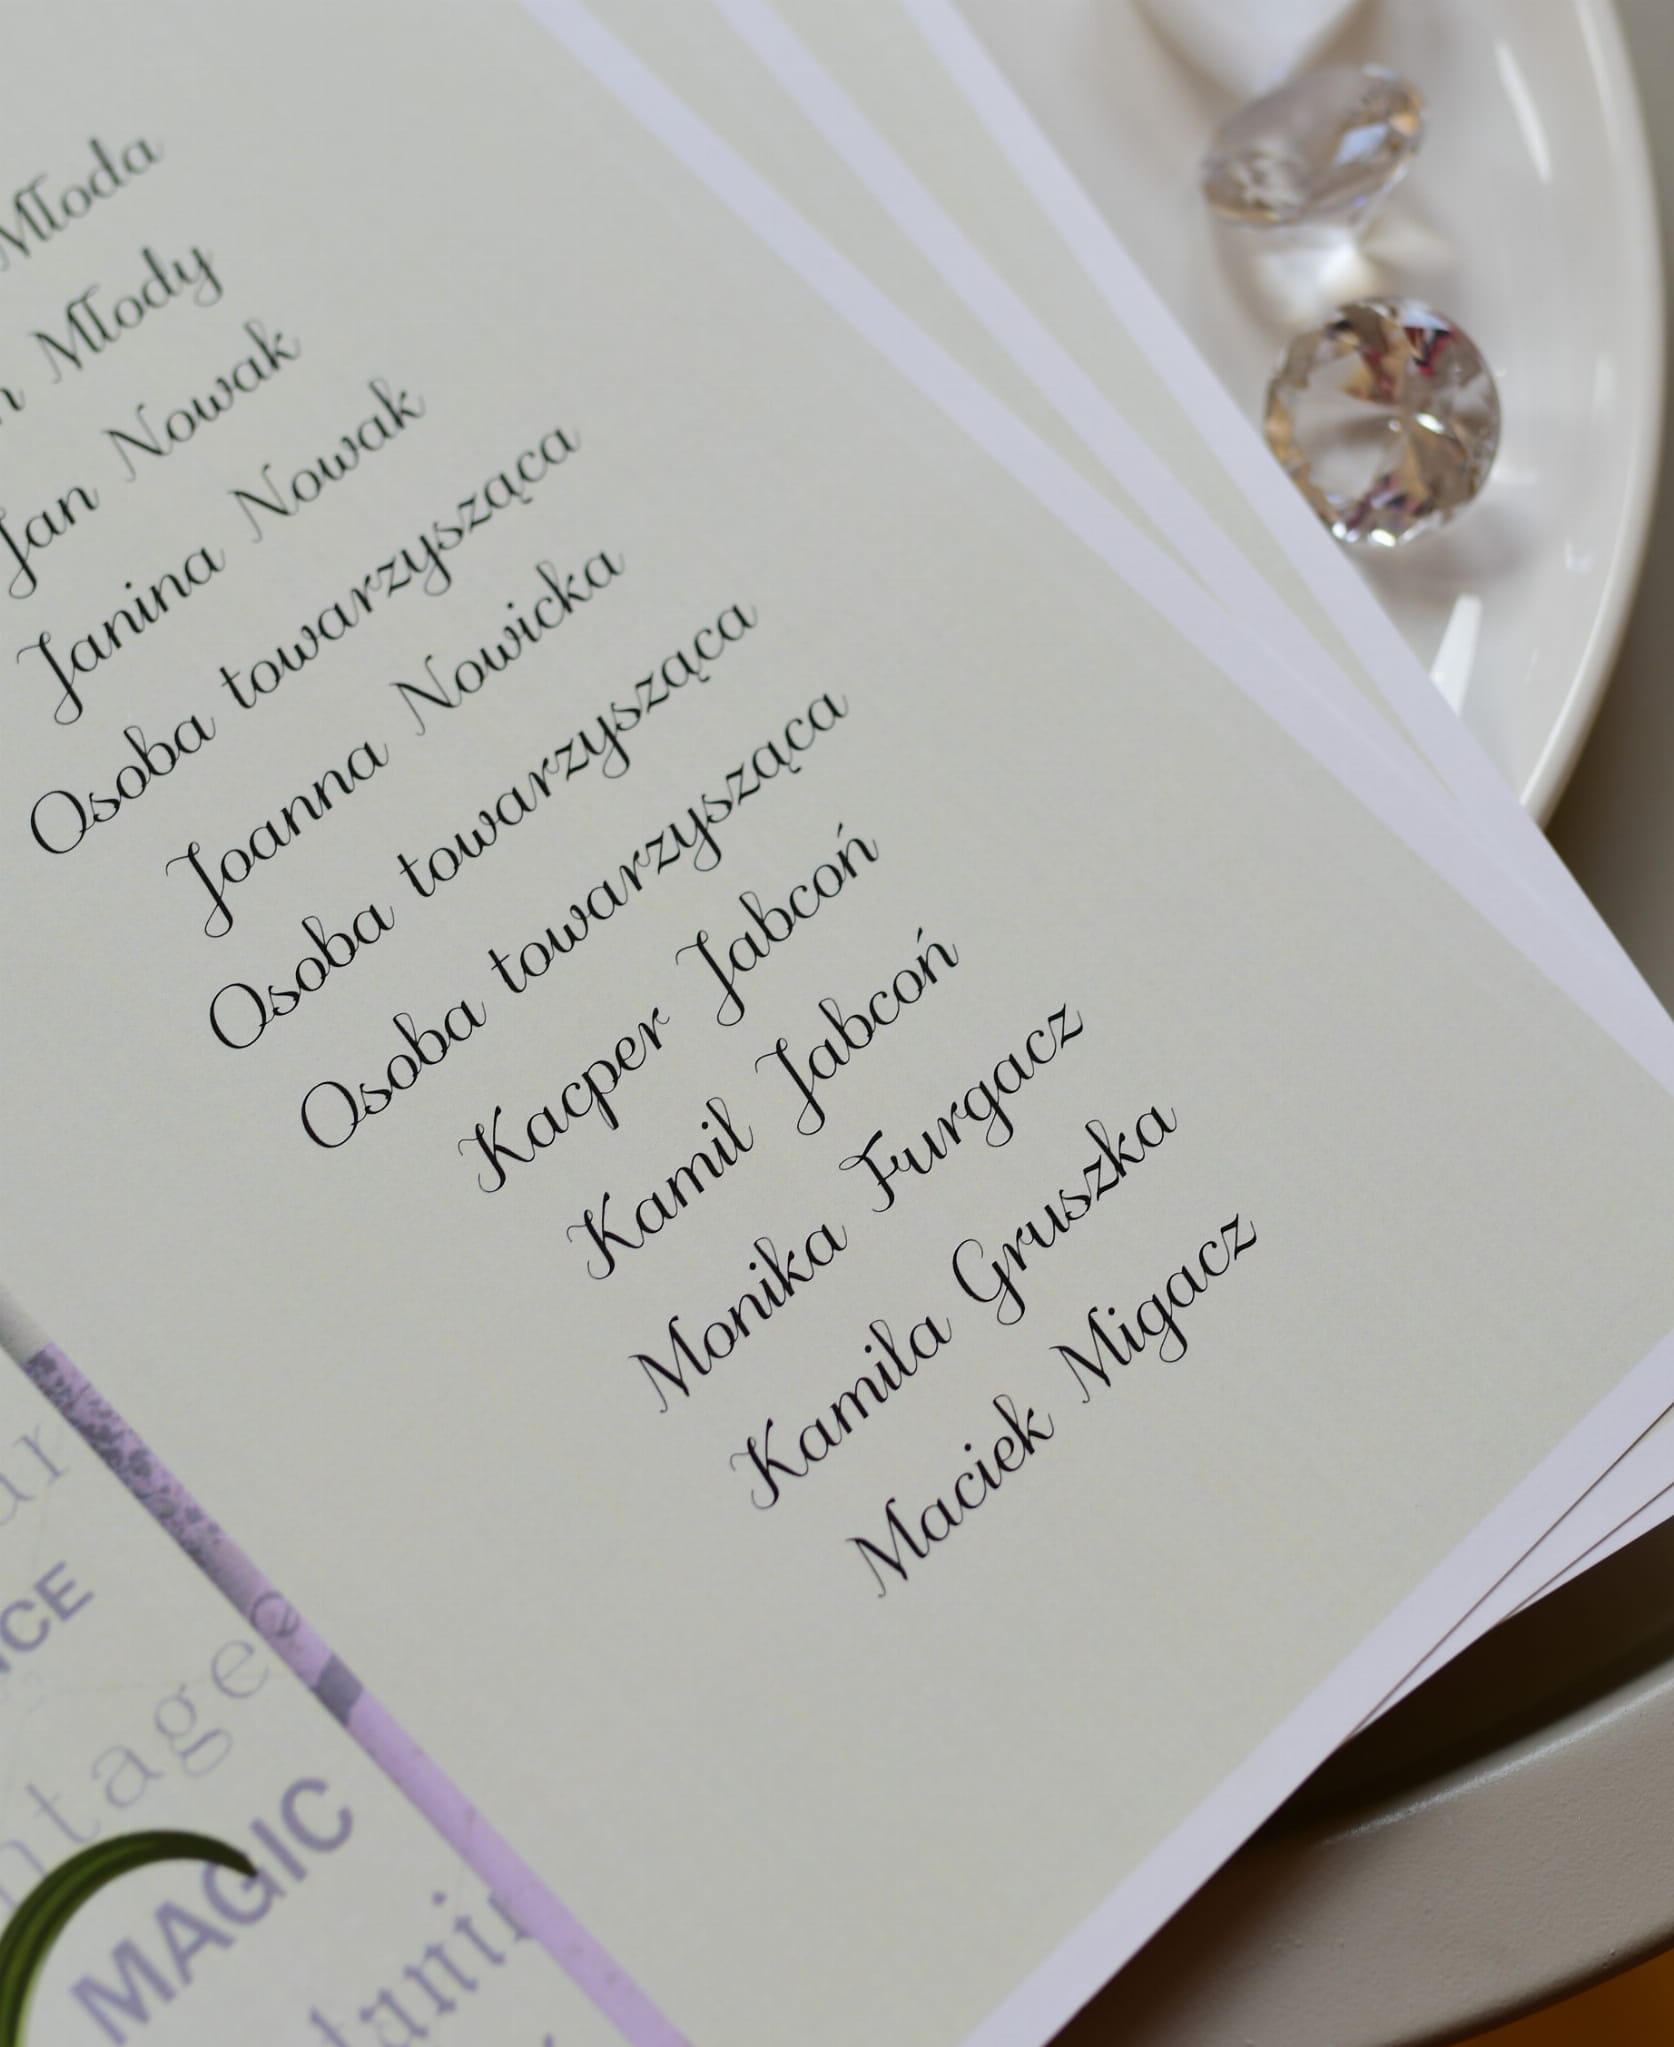 Młoda
Młody
Jan Nowak
Janina Nowak
Osoba towarzysząca
Joanna Nowicka
Osoba towarzysząca
Osoba towarzysząca
Kacper Jabcoń
Kamil Jabcoń
Monika Furgacz
Kamila Gruszka
Maciek Migacz
MAGIC